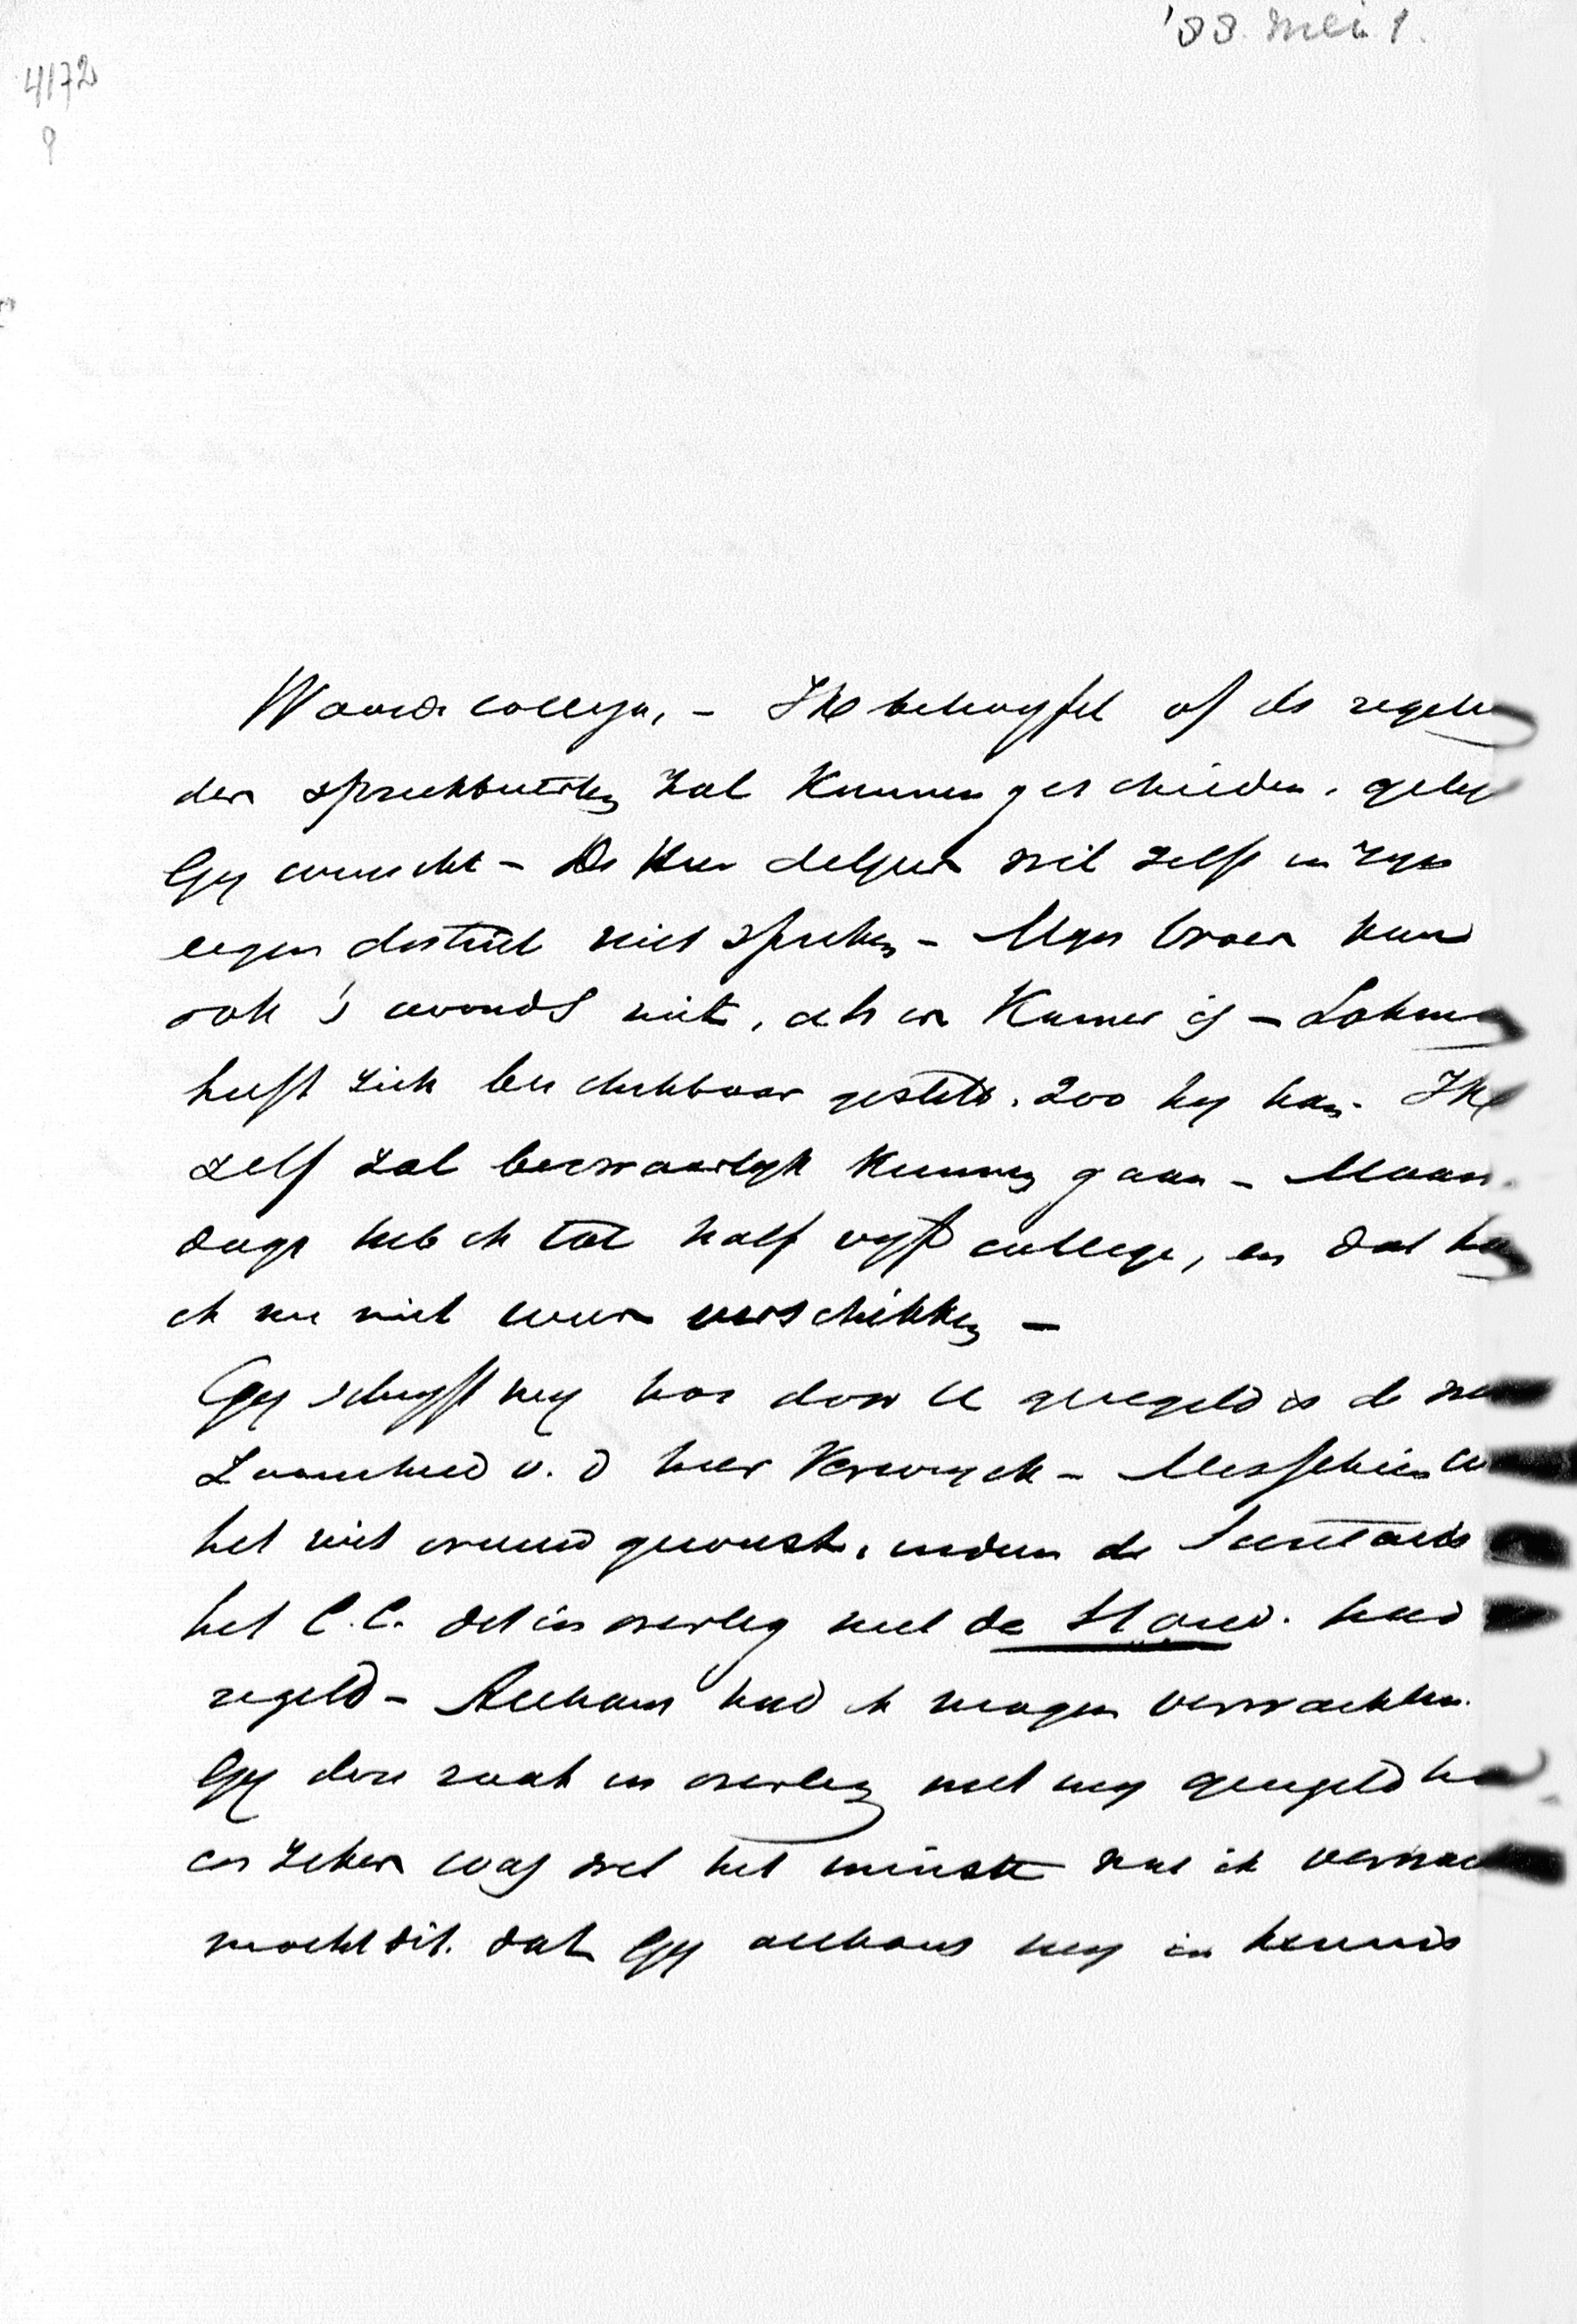 '88. Mei 1.
4172
Waarde Collega, – Ik betwyfel of de regeling
der spreekbeurten zal kunnen geschieden, gelyk
Gy wenscht – De Heer wil zelf in zyn
eigen district niet spreken – Myn broer kan
ook 's avonds niet, als er Kamer is – Lohman
heeft zich beschikbaar gesteld, zoo hy kan. Ik
zelf zal bezwaarlyk kunnen gaan – Maan-
dags heb ik tot half vyf college, en dat kan
ik nu niet weer verschikken –
Gy schryft my hoe door U geregeld is de
zaamheid v. d heer Verwyck – Misschien
het niet vreemd geweest, indien de Secretaris
het C.C. dit in overleg met de Stand. had
regeld – Althans had ik mogen verwachten
Gy deze zaak in overleg met my geregeld had
en zeker was wel het minste wat ik
mocht dit, dat Gy althans my in kennis